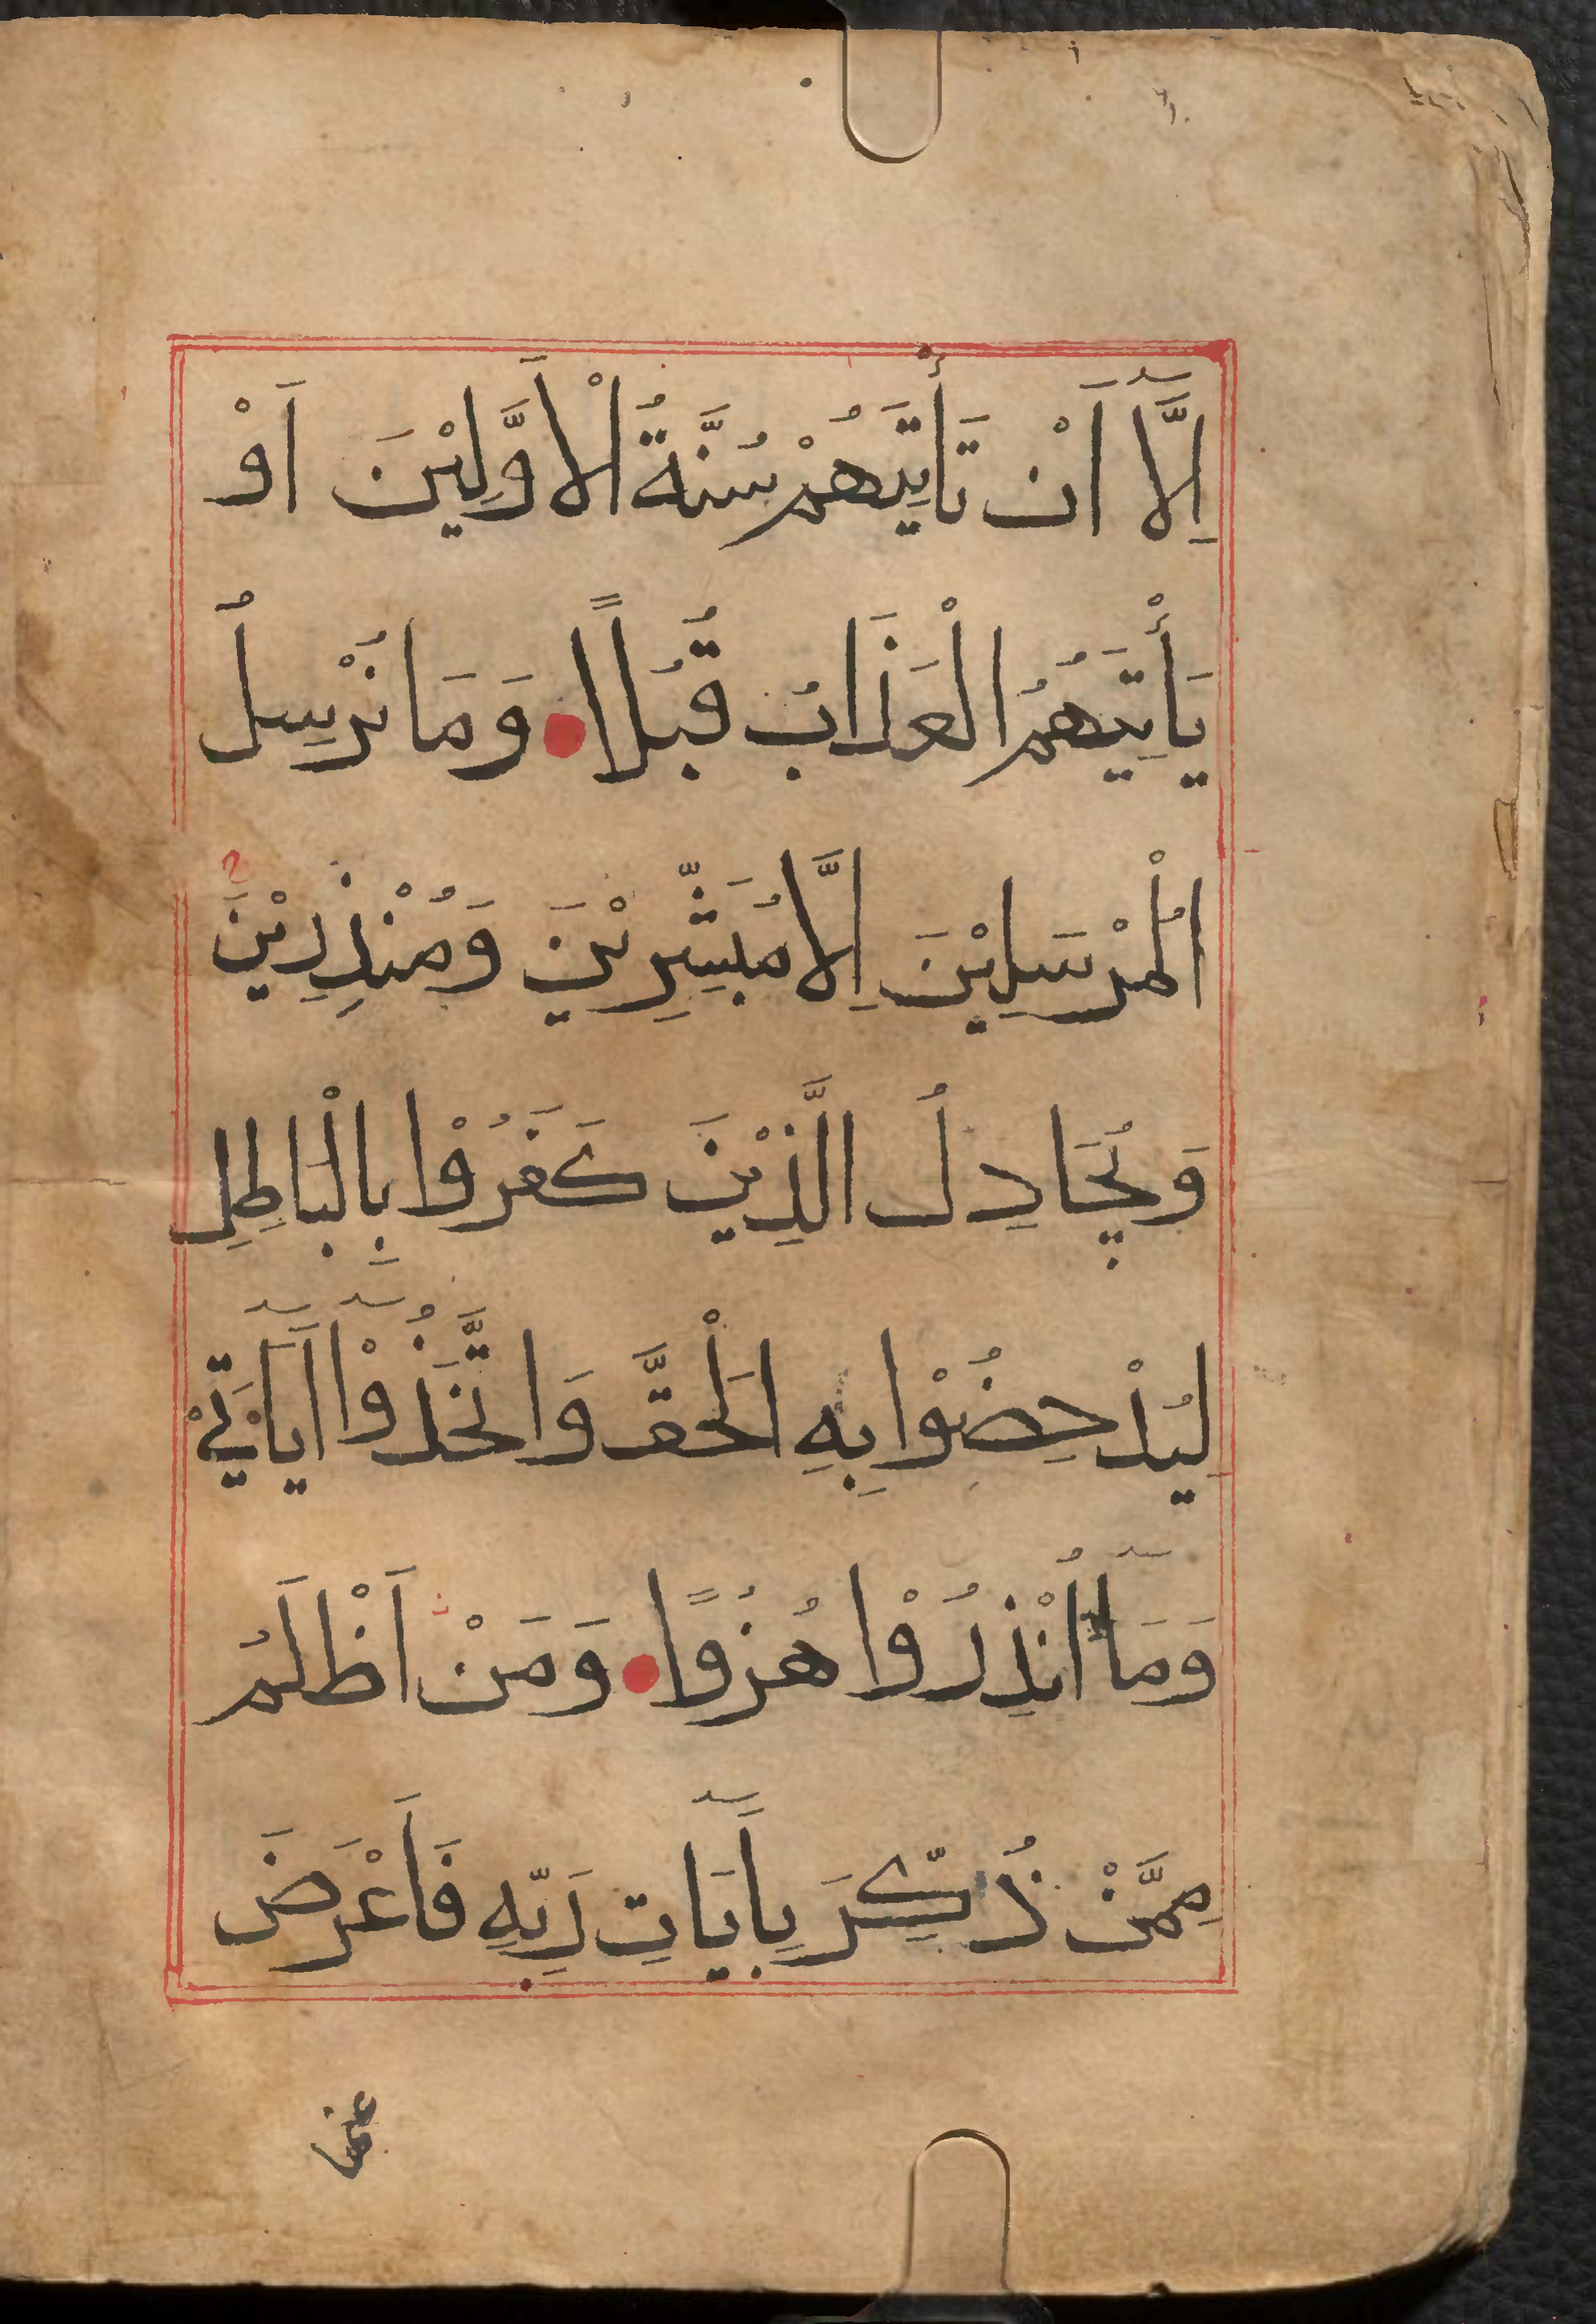 اِلَّآ اَنْ تَأْتِيَهُمْ سُنَّةُ الْاَوَّلِيْنَ اَوْ
يَأْتِيَهُمُ الْعَذَابُ قُبُلًا وَمَا نُرْسِلُ
الْمُرْسَلِيْنَ اِلَّا مُبَشِّرِيْنَ وَمُنْذِرِيْنَ
وَيُجَادِلُ الَّذِيْنَ كَفَرُوْا بِالْبَاطِلِ
لِيُدْحِضُوْا بِهِ الْحَقَّ وَاتَّخَذُوْآ اٰيَاتِيْ
وَمَآ اُنْذِرُوْا هُزُوًا وَمَنْ اَظْلَمُ
مِمَّنْ ذُكِّرَ بِاٰيَاتِ رَبِّهِ فَاَعْرَضَ
عنها